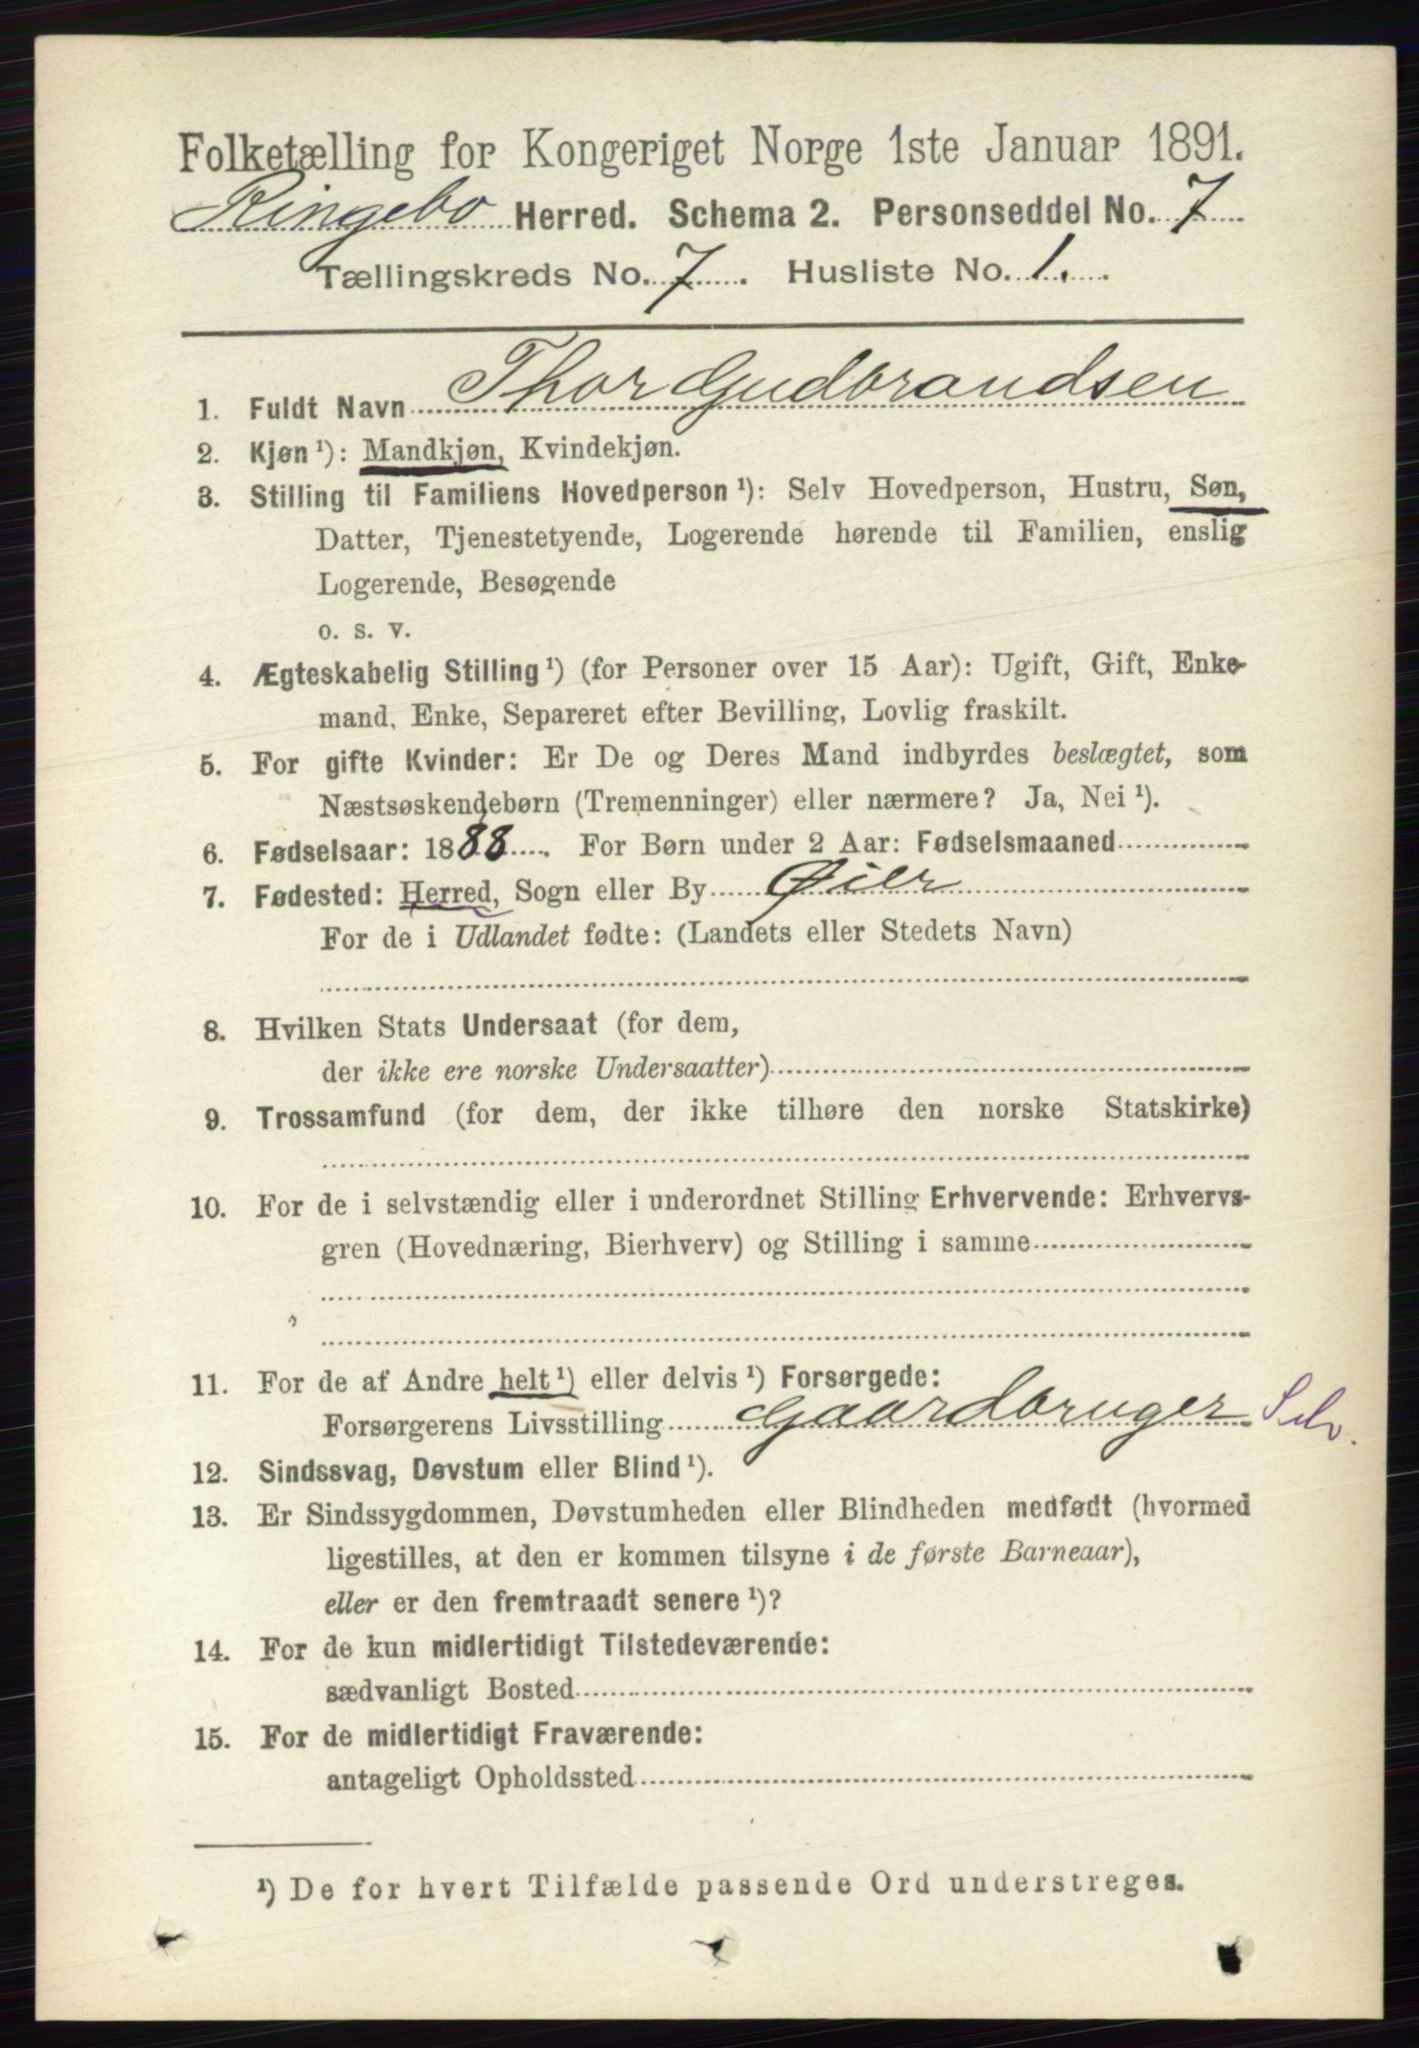 Folketælling for Kongeriget Norge 1ste Januar 1891.
Ringebo Herred. Schema 2. Personseddel No. 7
Tællingskreds No. 7. Husliste No. 1.
1. Fuldt Navn Thor Gudbrandsen
2. Kjøn ¹): Mandkjøn, Kvindekjøn.
3. Stilling til Familiens Hovedperson ¹): Selv Hovedperson, Hustru, Søn,
Datter, Tjenestetyende, Logerende hørende til Familien, enslig
Logerende, Besøgende
o. s. v.
4. Ægteskabelig Stilling ¹) (for Personer over 15 Aar): Ugift, Gift, Enke-
mand, Enke, Separeret efter Bevilling, Lovlig fraskilt.
5. For gifte Kvinder: Er De og Deres Mand indbyrdes beslægtet, som
Næstsøskendebørn (Tremenninger) eller nærmere? Ja, Nei ¹).
6. Fødselsaar: 1888. For Børn under 2 Aar: Fødselsmaaned
7. Fødested: Herred, Sogn eller By Øier
For de i Udlandet fødte: (Landets eller Stedets Navn)
8. Hvilken Stats Undersaat (for dem,
der ikke ere norske Undersaatter)
9. Trossamfund (for dem, der ikke tilhøre den norske Statskirke)
10. For de i selvstændig eller i underordnet Stilling Erhvervende: Erhvervs-
gren (Hovednæring, Bierhverv) og Stilling i samme
11. For de af Andre helt ¹) eller delvis ¹) Forsørgede:
Forsørgerens Livsstilling Gaardbruger Selv.
12. Sindssvag, Døvstum eller Blind ¹).
13. Er Sindssygdommen, Døvstumheden eller Blindheden medfødt (hvormed
ligestilles, at den er kommen tilsyne i de første Barneaar),
eller er den fremtraadt senere ¹)?
14. For de kun midlertidigt Tilstedeværende:
sædvanligt Bosted
15. For de midlertidigt Fraværende:
antageligt Opholdssted
¹) De for hvert Tilfælde passende Ord understreges.